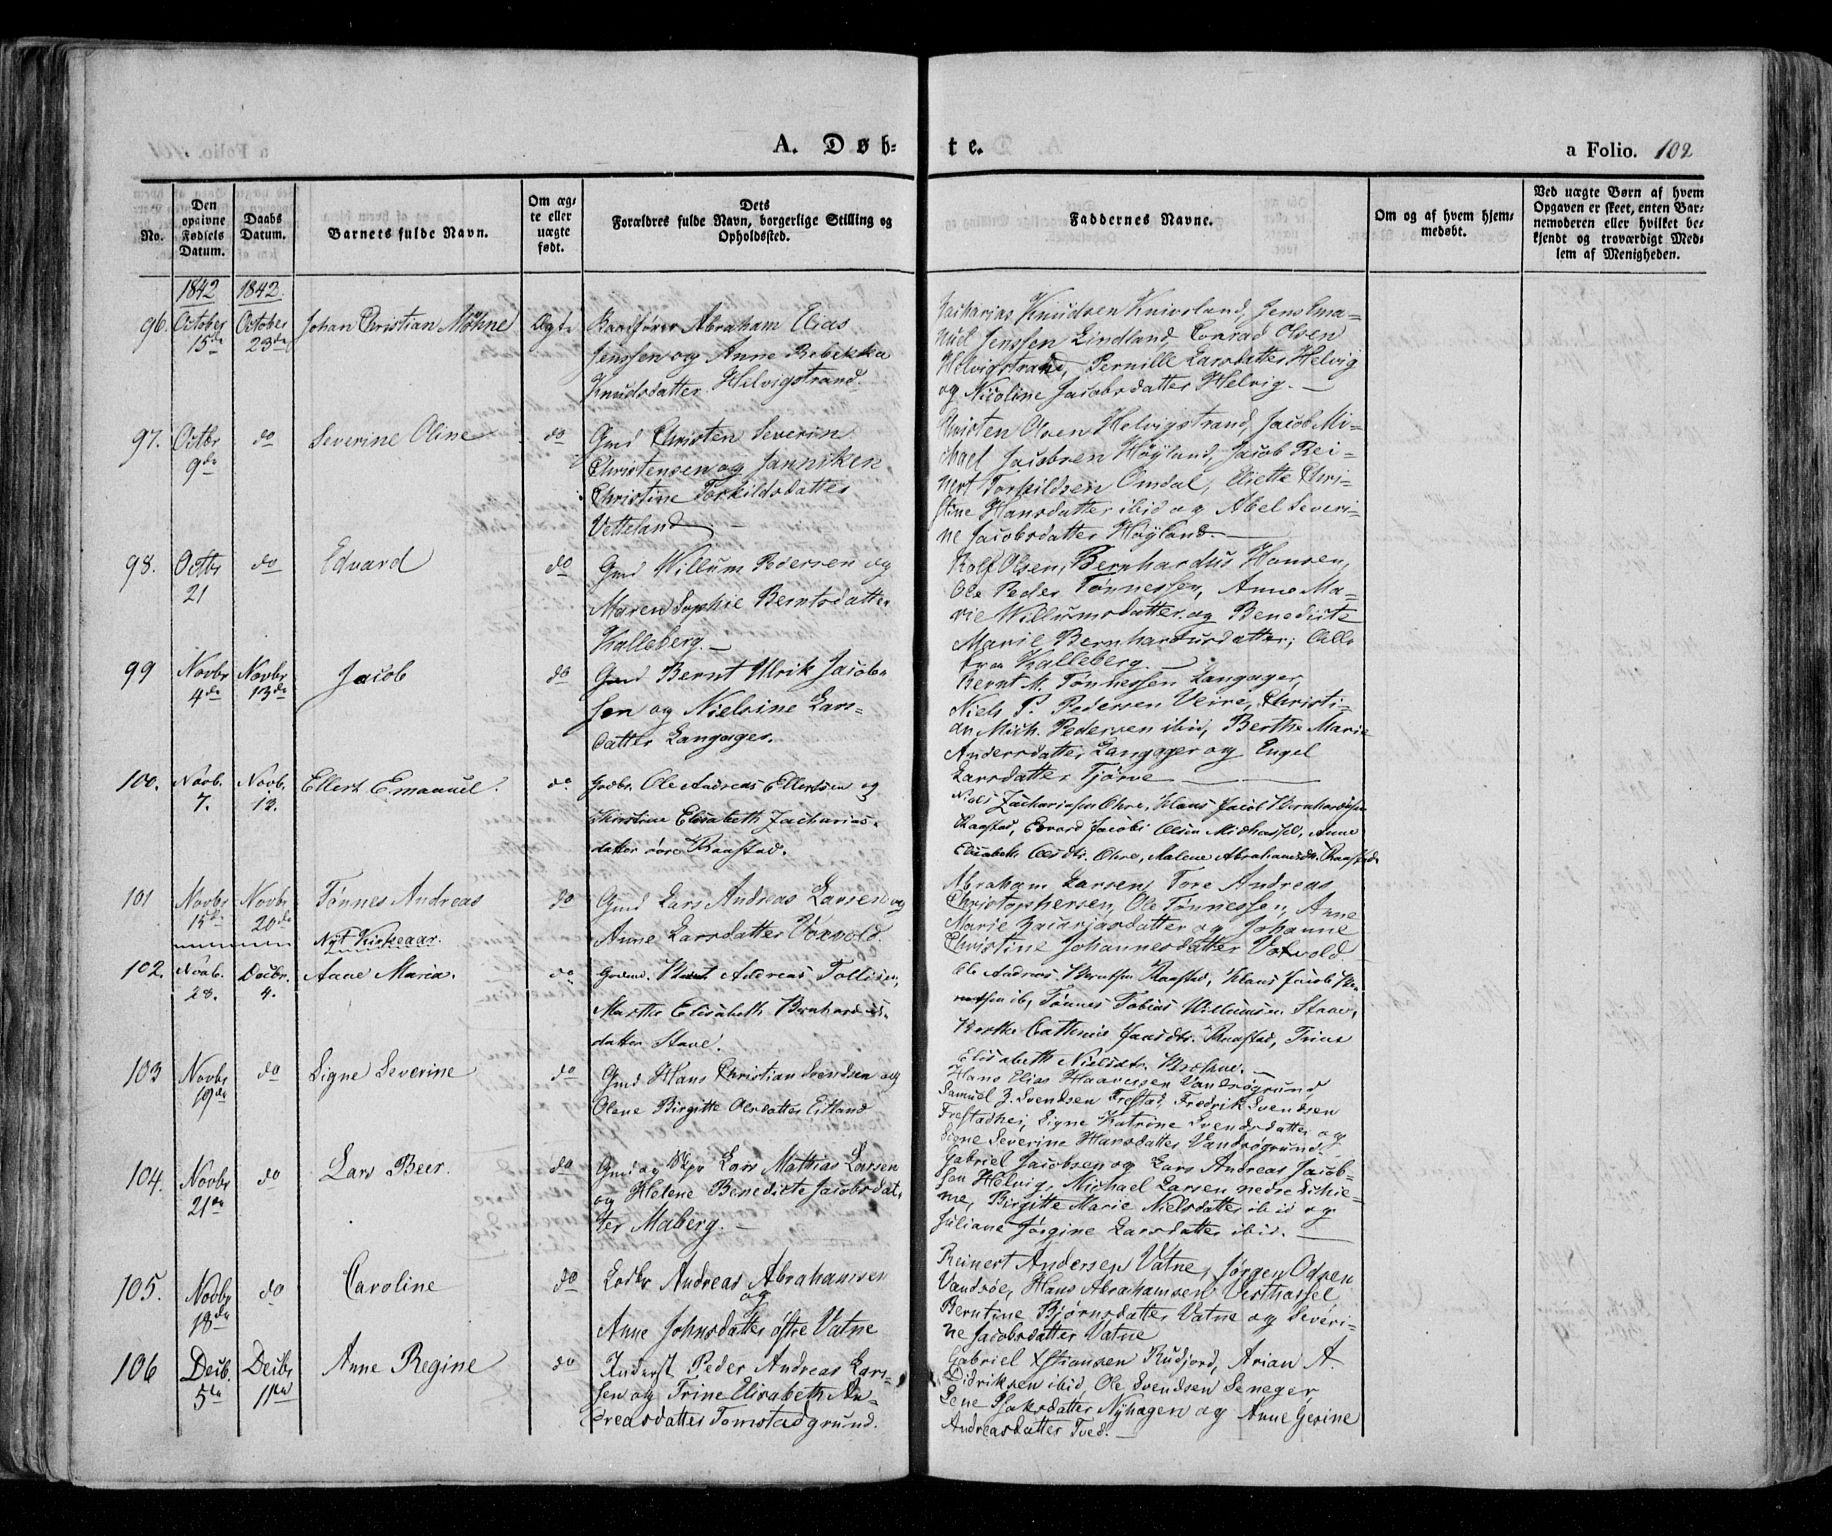 A. Døb-
te.
a Folio. 102
No.
Den opgivne Fødsels Datum.
Daabs Datum.
Barnets fulde Navn.
Om ægte eller uægte født.
Dets Forældres fulde Navn, borgerlige Stilling og Opholdssted.
Faddernes Navne.
Om og af hvem hjemmedøbt.
Ved uægte Børn af hvem Opgaven er skeet, enten Barnemoderen eller hvilket bekjendt og troværdigt Medlem af Menigheden.
1842 1842
96. October 15de October 23de Johan Christian Møhne Ægte
Abraham Elias
Jenssen og Anne Rebekka
Knudsdatter Helvigstrand.
Zacharias Knudsen Kniveland, Jens Ema-
nuel Jenssen Lindland, Conrad Olsen
Helvigstrand, Pernille Larsdatter Helvig
og Nicoline Jacobsdatter Helvig.
97. Octbr 9de do Severine Oline do
Gmd Christen Severin
Christensen og Janniken
Christine Torkildsdatter
Vetteland
Christen Olsen Helvigstrand, Jacob Mi-
chael Jacobsen Høyland, Jacob Rei-
nert Torkildsen Omdal, Eliette Chri-
stine Hansdatter ibid og Abel Severi-
ne Jacobsdatter Høyland.
98. Octbr 21 do Edvard do
Gmd Willum Pedersen og
Maren Sophie Berntsdatter
Kalleberg.
Rolf Olsen, Bernhardus Hansen,
Ole Peder Tønnessen, Anne Ma-
rie Willumsdatter og Benedicte
Marie Bernhardusdatter, Alle
fra Kalleberg.
99 Novbr 4de Novbr 13de Jacob do
Gmd Bernt Ulrik Jacob-
sen og Nielsine Lars-
datter Langager.
Bernt M. Tønnessen Langager,
Niels P. Pedersen Veire, Christi-
an Mich. Pedersen ibid, Berthe Marie
Andersdatter Langager og Engel
Larsdatter Tjørve
100. Novb. 7. Novb. 13. Ellert Emanuel. do
Gdbr. Ole Andreas Ellertsen og
Christine Elisabeth Zacharias-
datter øvre Raastad.
Niels Zachariassen Ohre, Hans Jacob Bernhardsen
Raastad, Edvard Jacobi Olsen Midhassel, Anne
Elisabeth Olsdtr. Ohre, Malene Abrahamsdtr. Raastad.
101 Novbr 15de Novbr 20de Tønnes Andreas do
Gmd Lars Andreas Larsen og
Anne Larsdatter Voxvold.
Abraham Larsen, Tore Andreas
Christophersen, Ole Tønnessen, Anne
Marie Zacariasdatter og Johanne
Christine Johannesdatter Voxvold
Nyt Kirkeaar.
102. Novb. 28. Decbr. 4. Anne Maria. do
Gmd. Bernt Andreas Tollisen,
Marthe Elisabeth Bernhardus-
datter Stave.
Ole Andreas Berntsen Raastad, Hans Jacob Be-
rntsen ib, Tønnes Tobias Willumsen Stave,
Berthe Cathrine Raastad, Trine
Elisabeth Nielsdtr.
103 Novbr 19de do Signe Severine do
Gmd Hans Christian Svendsen og
Olene Birgitte Olsdatter Eitland
Hans Elias Haaversen Vandsøgrund,
Samuel Z. Svendsen Frestad, Fredrik Svendsen
Frestadhei, Signe Katrine Svendsdatter og
Signe Severine Hansdatter Vandsøgrund.
104. Novbr 21de do Lars Beer. do
Gmd og Lars Mathias Larsen
og Helene Benedicte Jacobsdat-
ter Maberg.
Gabriel Jacobsen og Lars Andreas Jacob-
sen Helvig, Michael Larsen nedre Skie-
me, Birgitte Marie Nielsdatter ibid og
Juliane Jørgine Larsdatter ibid.
105. Novbr 18de do Caroline do
Andreas Abrahamsen
og
Anne Johnsdatter østre Vatne
Reinert Andersen Vatne, Jørgen Odsen
Vandsøe, Hans Abrahamsen Vesthassel
Berntine Bjørnsdatter Vatne og Severi-
ne Jacobsdatter Vatne
106 Decb. 5te Decbr 11te Anne Regine do
Inderst Peder Andreas Lar-
sen og Trine Elisabeth An-
dreasdatter Tomstadgrund.
Gabriel Xstiansen Rudjord, Arian A.
Didriksen ibid, Ole Svendsen Seneger,
Lene Nyhagen og Anne Gesine
Andreasdatter Tved.